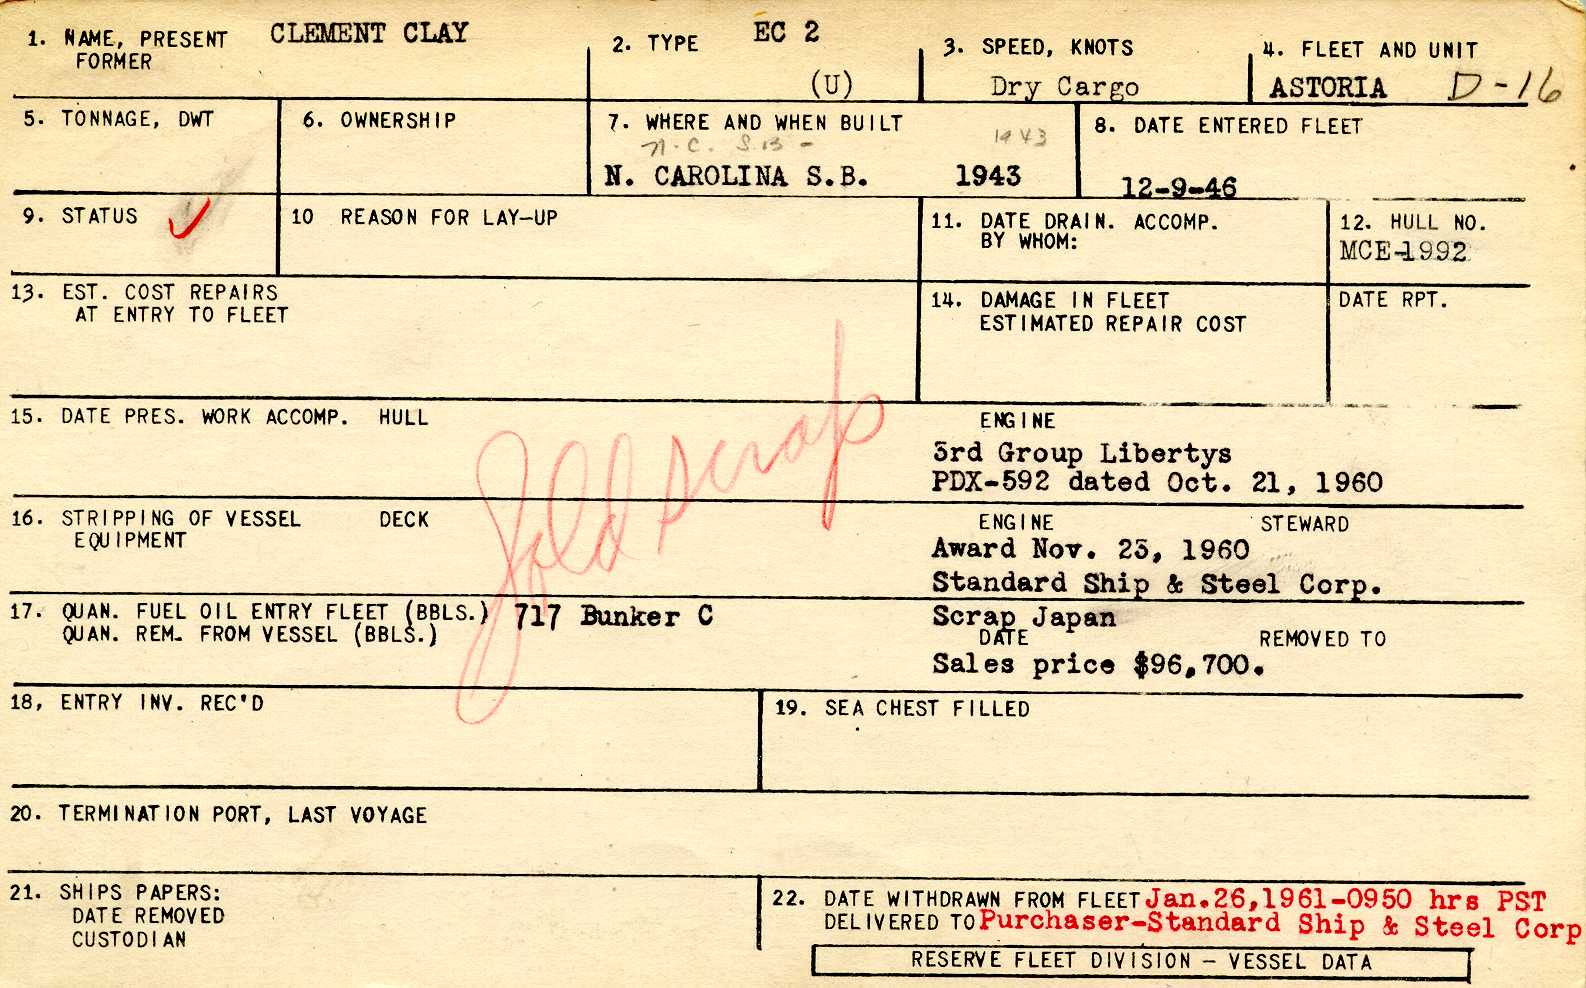 1. NAME, PRESENT CLEMENT CLAY
FORMER
2. TYPE EC 2
(U)
3. SPEED, KNOTS
Dry Cargo
4. FLEET AND UNIT
ASTORIA D-16
5. TONNAGE, DWT
6. OWNERSHIP
7. WHERE AND WHEN BUILT
N.C. S.B - 1943
N. CAROLINA S.B. 1943
8. DATE ENTERED FLEET
12-9-46
9. STATUS
10 REASON FOR LAY-UP
11. DATE DRAIN. ACCOMP.
BY WHOM:
12. HULL NO.
MCE-1992
13. EST. COST REPAIRS
AT ENTRY TO FLEET
14. DAMAGE IN FLEET
ESTIMATED REPAIR COST
DATE RPT.
Sold scrap
15. DATE PRES. WORK ACCOMP. HULL
ENGINE
3rd Group Libertys
PDX-592 dated Oct. 21, 1960
16. STRIPPING OF VESSEL DECK
EQUIPMENT
ENGINE STEWARD
Award Nov. 23, 1960
Standard Ship & Steel Corp.
17. QUAN. FUEL OIL ENTRY FLEET (BBLS.) 717 Bunker C
QUAN. REM. FROM VESSEL (BBLS.)
Scrap Japan
DATE REMOVED TO
Sales price $96,700.
18, ENTRY INV. REC'D
19. SEA CHEST FILLED
20. TERMINATION PORT, LAST VOYAGE
21. SHIPS PAPERS:
DATE REMOVED
CUSTODIAN
22. DATE WITHDRAWN FROM FLEET Jan.26,1961-0950 hrs PST
DELIVERED TO Purchaser-Standard Ship & Steel Corp
RESERVE FLEET DIVISION - VESSEL DATA